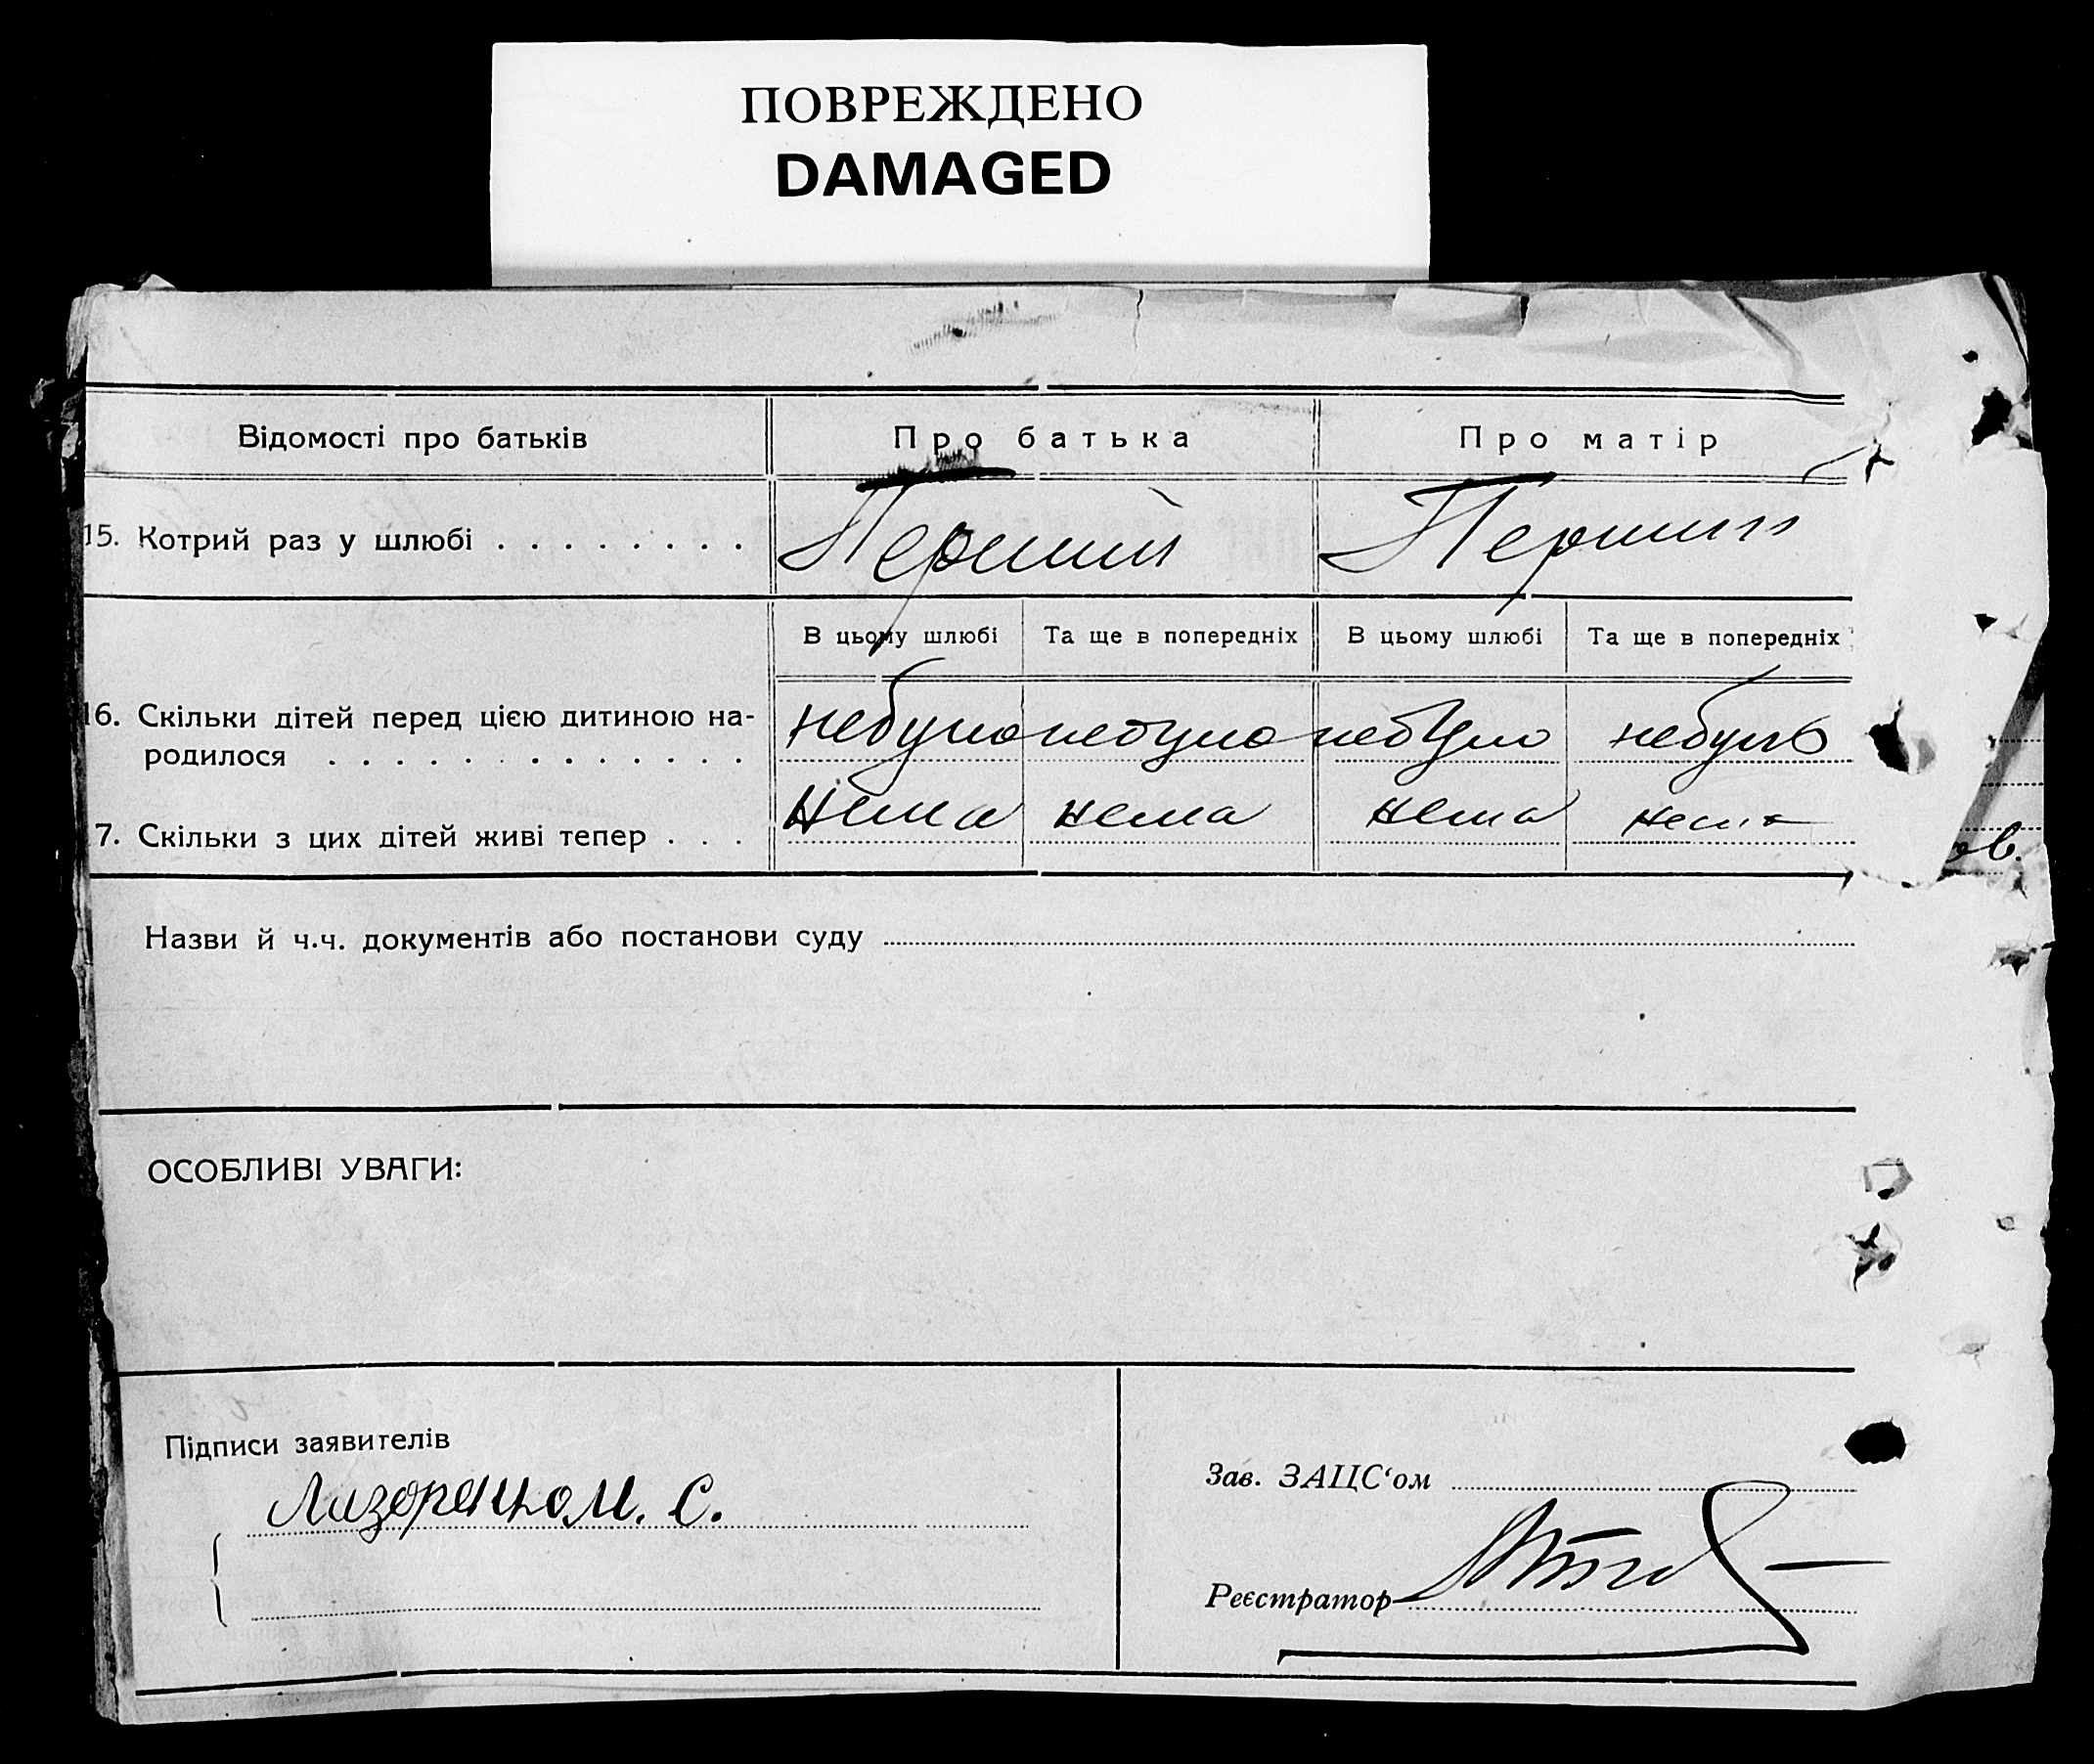 ПОВРЕЖДЕНО
DAMAGED
Відомості про батьків
Про батька
Про матір
15. Котрий раз у шлюбі
Перший
Перший
В цьому шлюбі
Та ще в попередніх
В цьому шлюбі
Та ще в попередніх
16. Скільки дітей перед цією дитиною на-
родилося
небуло
небуло
небуло
небуло
7. Скільки з цих дітей живі тепер . . .
нема
нема
нема
нема
ов.
Назви й ч.ч. документів або постанови суду
ОСОБЛИВІ УВАГИ:
Підписи заявителів
С.
Зав. ЗАЦС‘ом
Реєстратор